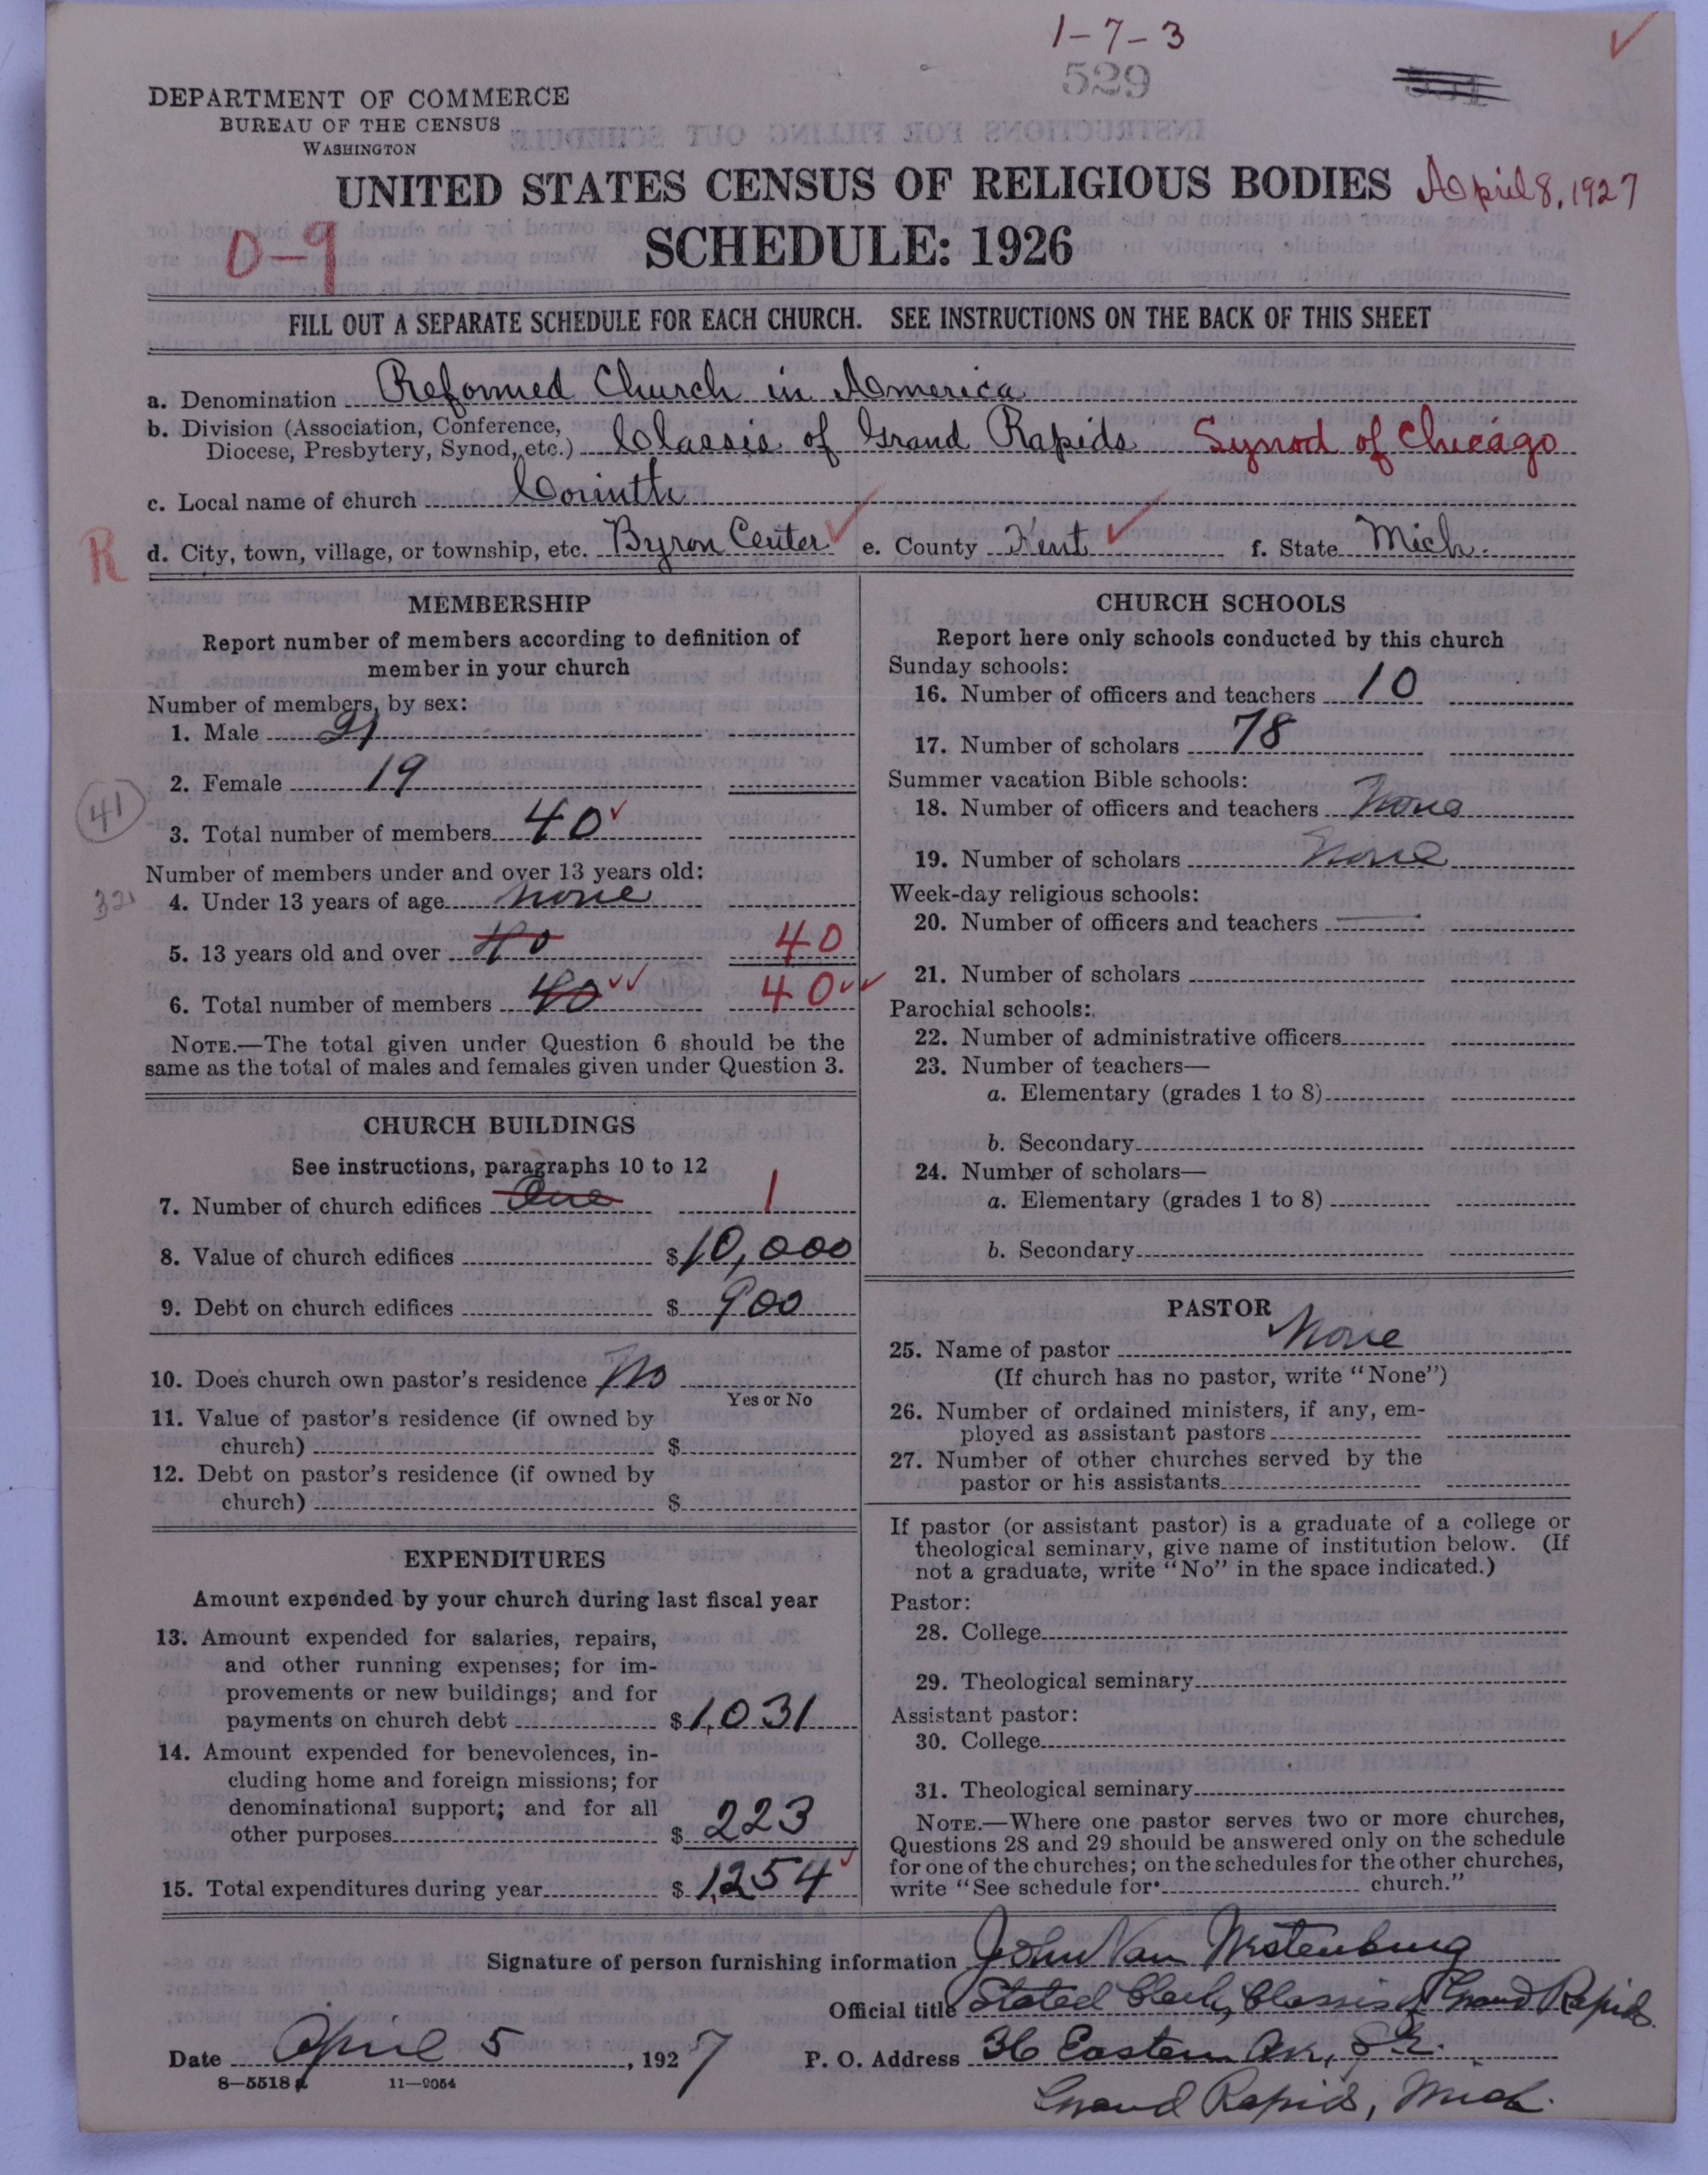 1-7-3
529
DEPARTMENT OF COMMERCE
BUREAU OF THE CENSUS
WASHINGTON
UNITED STATES CENSUS OF RELIGIOUS BODIES April 8, 1927
SCHEDULE: 1926
0-9
FILL OUT A SEPARATE SCHEDULE FOR EACH CHURCH. SEE INSTRUCTIONS ON THE BACK OF THIS SHEET
a. Denomination Reformed Church in America
b. Division (Association, Conference,
Diocese, Presbytery, Synod, etc.) Classis of Grand Rapids Synod of Chicago
c. Local name of church Corinth
R d. City, town, village, or township, etc. Byron Center e. County Kent f. State Mich.
MEMBERSHIP
Report number of members according to definition of
member in your church
Number of members, by sex:
1. Male 21
2. Female 19
41
3. Total number of members 40
Number of members under and over 13 years old:
4. Under 13 years of age none
5. 13 years old and over 40 40
6. Total number of members 40 40
NOTE.—The total given under Question 6 should be the
same as the total of males and females given under Question 3.
CHURCH BUILDINGS
See instructions, paragraphs 10 to 12
7. Number of church edifices One 1
8. Value of church edifices $10,000
9. Debt on church edifices $ 900
10. Does church own pastor's residence No
Yes or No
11. Value of pastor's residence (if owned by
church) $
12. Debt on pastor's residence (if owned by
church) $
EXPENDITURES
Amount expended by your church during last fiscal year
13. Amount expended for salaries, repairs,
and other running expenses; for im-
provements or new buildings; and for
payments on church debt $1,031
14. Amount expended for benevolences, in-
cluding home and foreign missions; for
denominational support; and for all
other purposes $ 223
15. Total expenditures during year $ 1,254
CHURCH SCHOOLS
Report here only schools conducted by this church
Sunday schools:
16. Number of officers and teachers 10
17. Number of scholars 78
Summer vacation Bible schools:
18. Number of officers and teachers None
19. Number of scholars None
Week-day religious schools:
20. Number of officers and teachers
21. Number of scholars
Parochial schools:
22. Number of administrative officers
23. Number of teachers—
a. Elementary (grades 1 to 8)
b. Secondary
24. Number of scholars—
a. Elementary (grades 1 to 8)
b. Secondary
PASTOR
25. Name of pastor None
(If church has no pastor, write "None")
26. Number of ordained ministers, if any, em-
ployed as assistant pastors
27. Number of other churches served by the
pastor or his assistants
If pastor (or assistant pastor) is a graduate of a college or
theological seminary, give name of institution below. (If
not a graduate, write "No" in the space indicated.)
Pastor:
28. College
29. Theological seminary
Assistant pastor:
30. College
31. Theological seminary
NOTE.—Where one pastor serves two or more churches,
Questions 28 and 29 should be answered only on the schedule
for one of the churches; on the schedules for the other churches,
write "See schedule for church."
Signature of person furnishing information John Van Westenburg
Official title Stated Clerk, Classis of Grand Rapids.
Date April 5, 1927 P. O. Address 36 Eastern Av., S.E.
8—5518 a 11—9054
Grand Rapids, Mich.